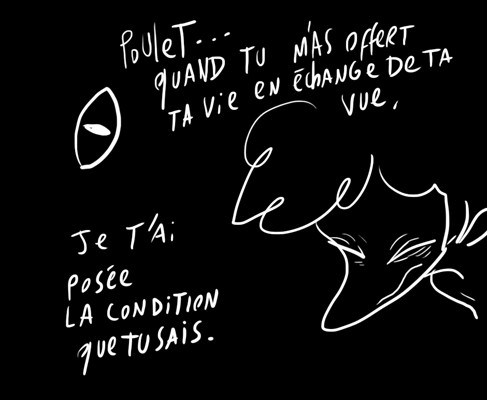 POULET...
QUAND TU M'AS OFFERT
TA VIE EN ÉCHANGE DE TA
VUE.
JE T'AI
POSÉE
LA CONDITION
QUE TU SAIS.